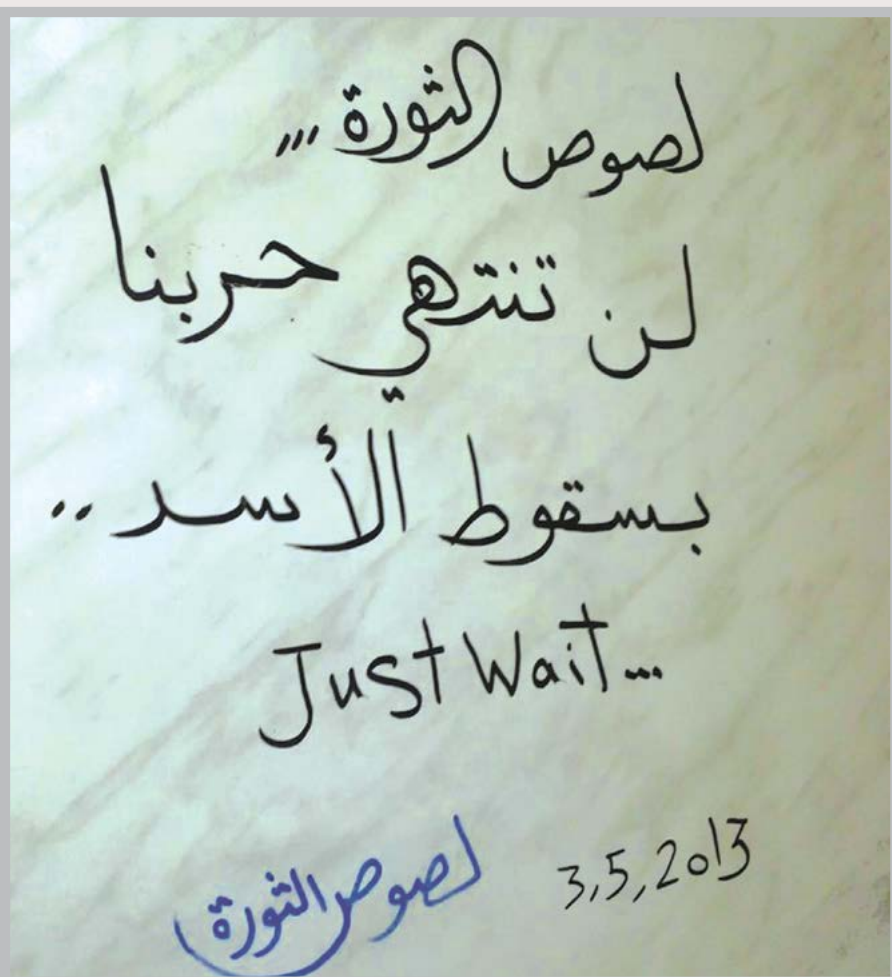 لصوص الثورة ,,,
لن تنتهي حربنا
بسقوط الأسد ..
Just Wait...
لصوص الثورة
3,5,2013